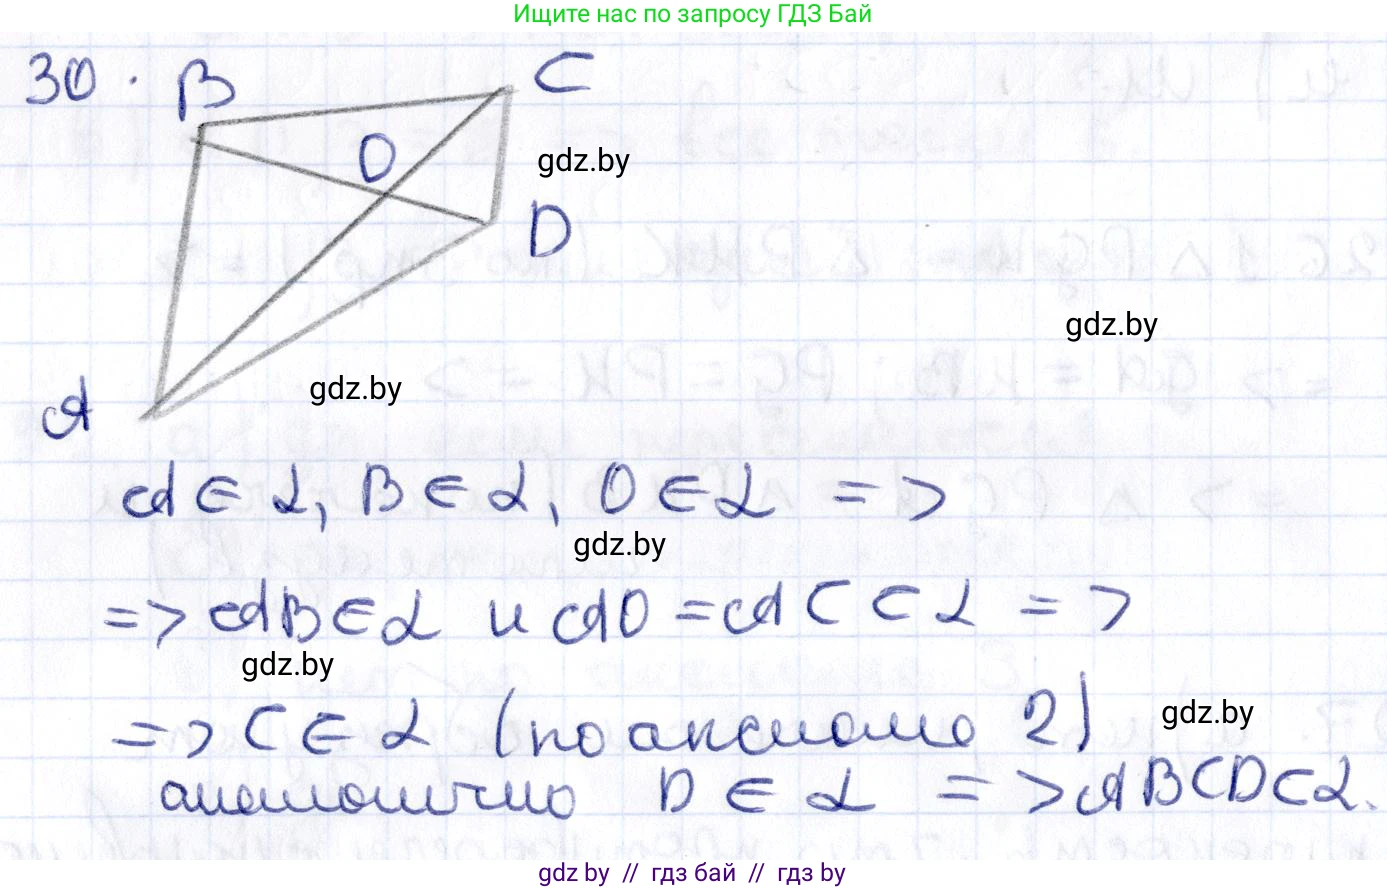 Ищите нас по запросу ГДЗ Бай
30. B C
O
gdz.by
D
gdz.by
gdz.by
A
A ∈ α, B ∈ α, O ∈ α =>
gdz.by
=> AB ∈ α и AO = AC ⊂ α =>
gdz.by
=> C ∈ α (по аксиоме 2)
gdz.by
аналогично D ∈ α => ABCD ⊂ α.
gdz.by // гдз бай // гдз by